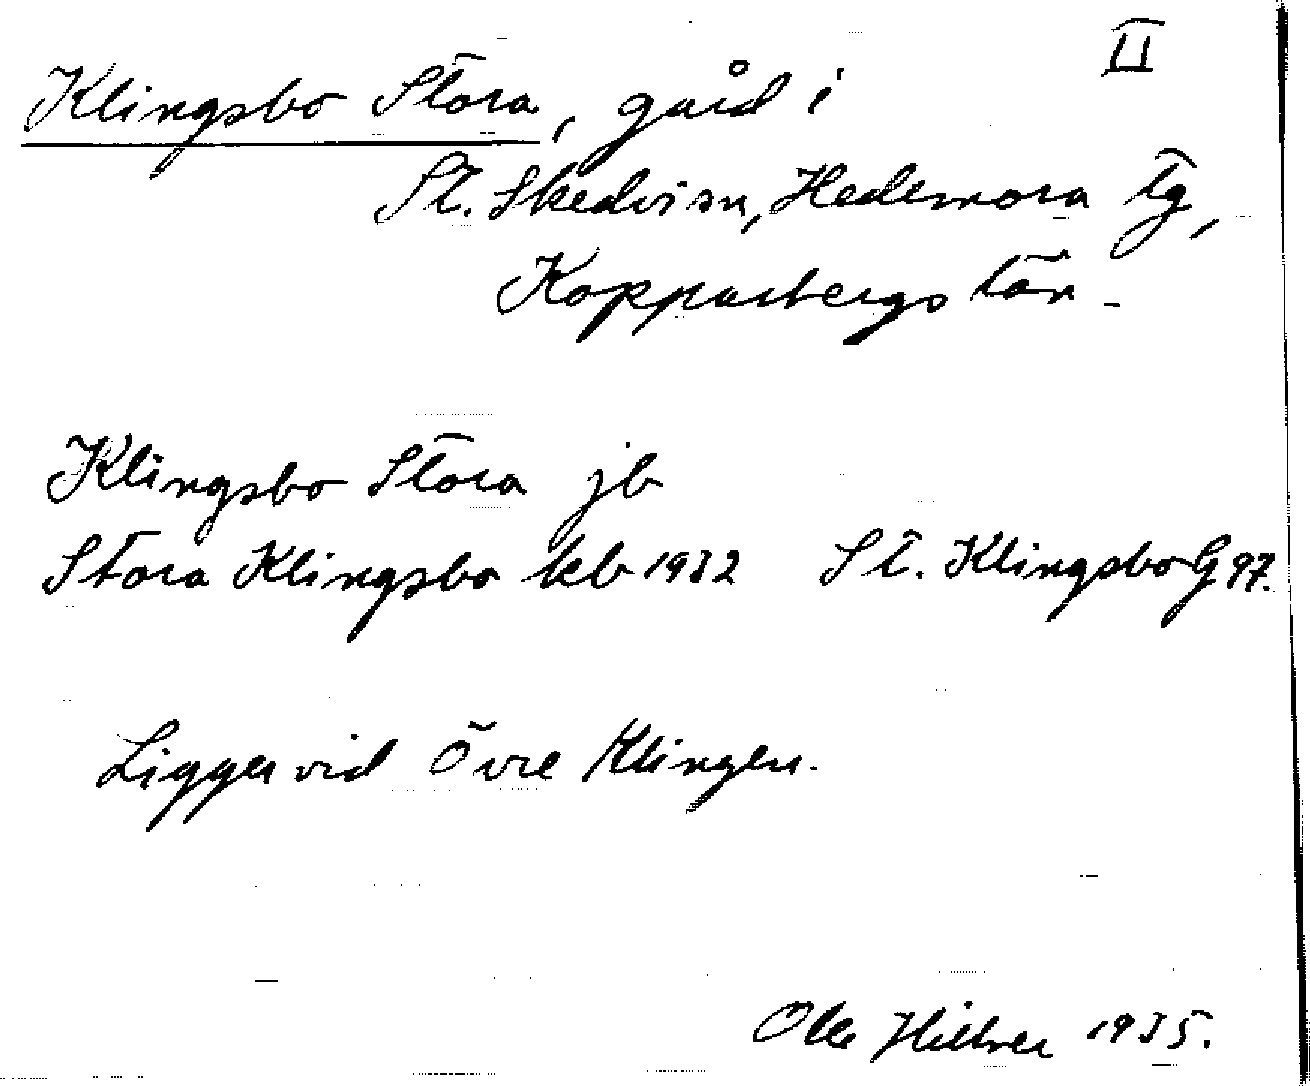 II
Klingsbo Stora, gård i
St. Skedvi sn, Hedemora tg,
Kopparbergs län.
Klingsbo Stora jb
Stora Klingsbo kb 1932 St. Klingsbo G 97.
Ligger vid Övre Klingen.
Olle Hillner 1935.